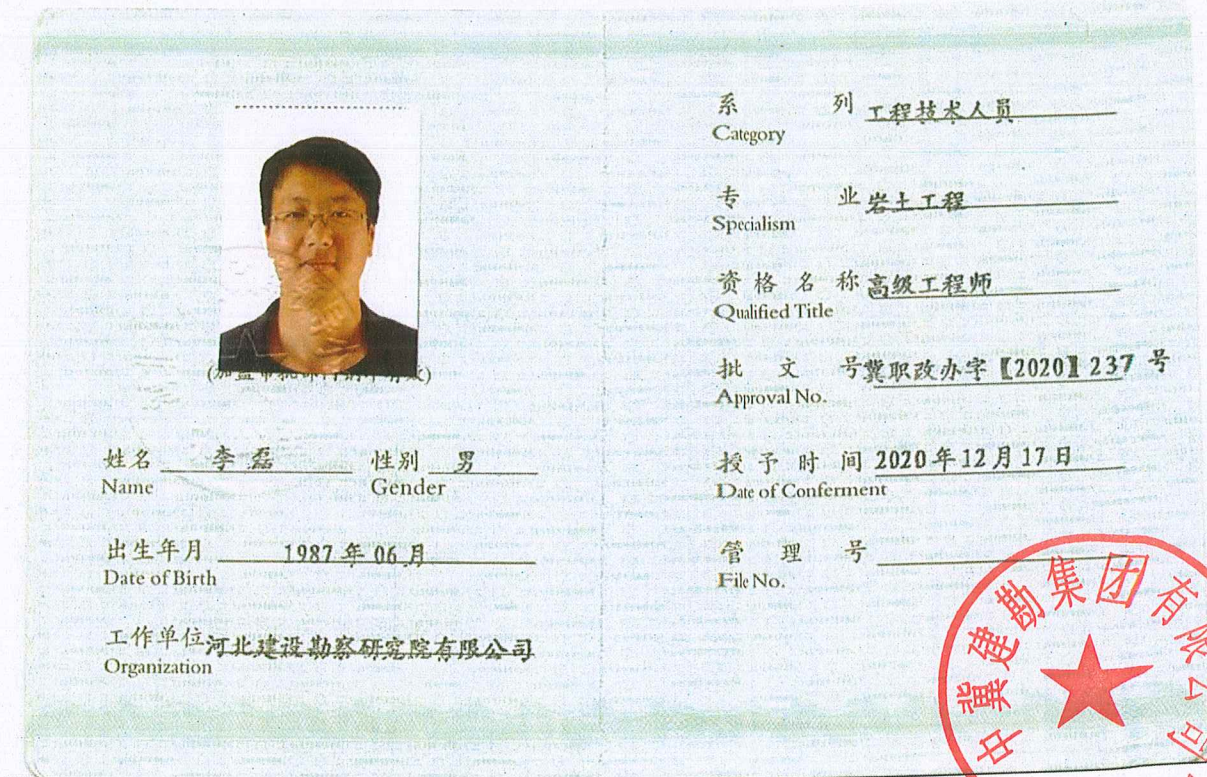 (加盖审批部门钢印有效)
姓名 李磊 性别 男
Name Gender
出生年月 1987年06月
Date of Birth
工作单位 河北建设勘察研究院有限公司
Organization
系 列 工程技术人员
Category
专 业 岩土工程
Specialism
资 格 名 称 高级工程师
Qualified Title
批 文 号 冀职改办字【2020】237 号
Approval No.
授 予 时 间 2020年12月17日
Date of Conferment
管 理 号
File No.
中冀建勘集团有限公司